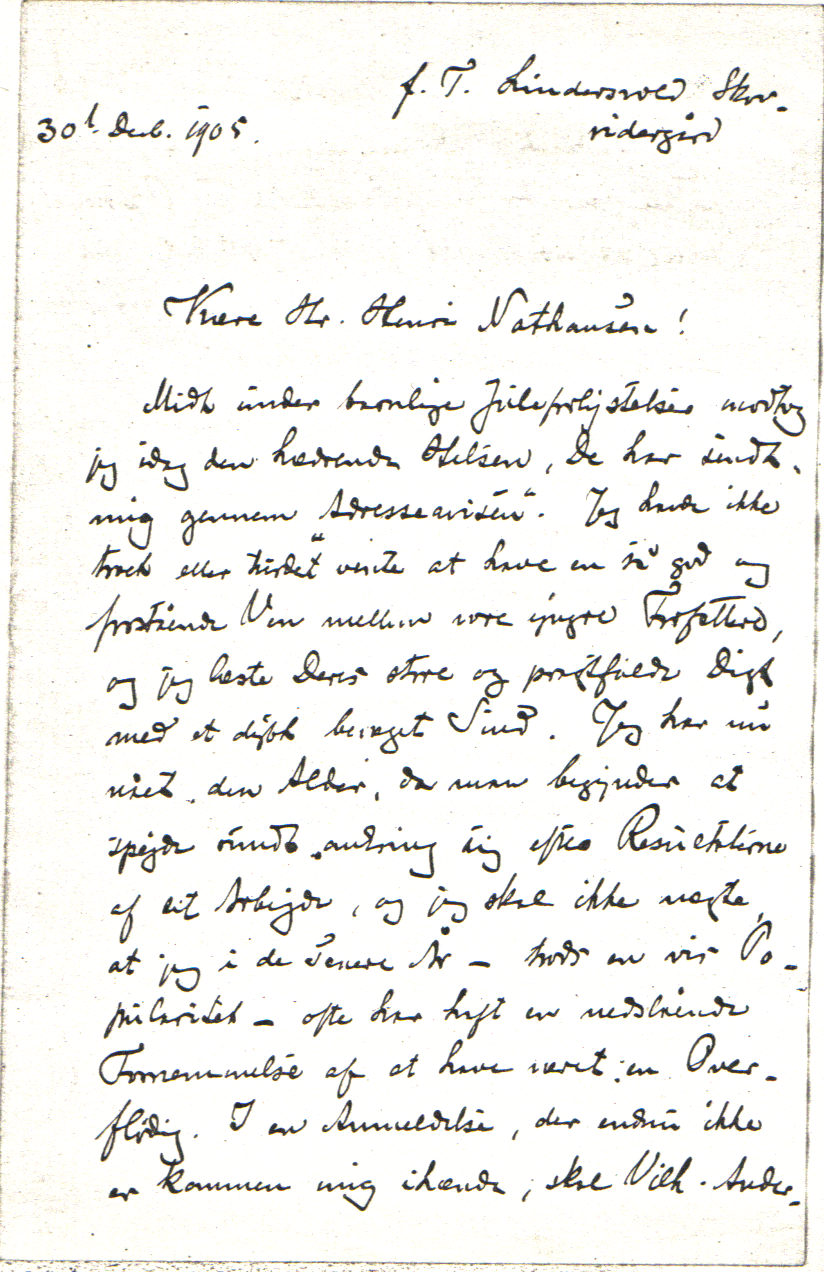 f. T. Lindersvold Skov-
ridergård
30t. Decb. 1905.
Kære Hr. Henri Nathansen!
Midt under barnlige Juleforlystelser modtog
jeg idag den hædrende Hilsen, De har sendt
mig gennem Adresseavisen". Jeg havde ikke
troet eller turdet vente at have en så god og
forstående Ven mellem vore yngre Forfattere,
og jeg læste Deres store og pragtfulde Digt
med et dybt bevæget Sind. Jeg har nu
nået den Alder, da man begynder at
spejde rundt omkring sig efter Resultaterne
af sit Arbejde, og jeg skal ikke nægte,
at jeg i de senere År – trods en vis Po-
pularitet – ofte har haft en nedslående
Fornemmelse af at have været en Over-
flødig. I en Anmeldelse, der endnu ikke
er kommen mig ihænde, skal Vilh. Ander-